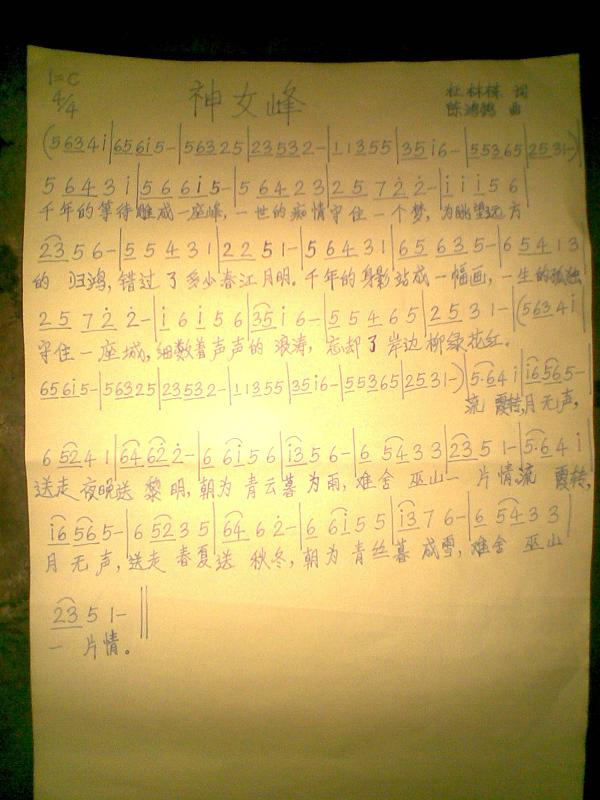 1=C
4/4
神女峰
杜林栋 词
陈鸿鹄 曲
(5 6 3 4 i|6 5 6 i 5 -|5 6 3 2 5|2 3 5 3 2 -|1 1 3 5 5|3 5 i 6 -|5 5 3 6 5|2 5 3 1 -)
5 6 4 3 i|5 6 6 i 5 -|5 6 4 2 3|2 5 7 2 2 -|i i i 5 6|
千年的等待雕成一座峰,一世的痴情守住一个梦,为眺望远方
2 3 5 6 -|5 5 4 3 1|2 2 5 1 -|5 6 4 3 1|6 5 6 3 5 -|6 5 4 1 3|
的 归鸿,错过了多少春江月明。千年的身影站成一幅画,一生的孤独
2 5 7 2 2 -|i 6 i 5 6|3 5 i 6 -|5 5 4 6 5|2 5 3 1 -|(5 6 3 4 i|
守住一座城,细数着声声的 浪涛,忘却了岸边柳绿花红。
6 5 6 i 5 -|5 6 3 2 5|2 3 5 3 2 -|1 1 3 5 5|3 5 i 6 -|5 5 3 6 5|2 5 3 1 -)|5·6 4 i|i 6 5 6 5 -|
流 霞转,月无声,
6 5 2 4 1|6 4 6 2 2 -|6 6 i 5 6|i 3 5 6 -|6 5 4 3 3|2 3 5 1 -|5·6 4 i|
送走 夜晚送 黎明,朝为 青云暮为雨,难舍 巫山一 片情,流 霞转,
i 6 5 6 5 -|6 5 2 3 5|6 4 6 2 -|6 6 i 5 5|i 3 7 6 -|6 5 4 3 3|
月 无 声,送走 春夏送 秋冬,朝为 青丝暮 成雪,难舍 巫山
2 3 5 1 -‖
一 片情。